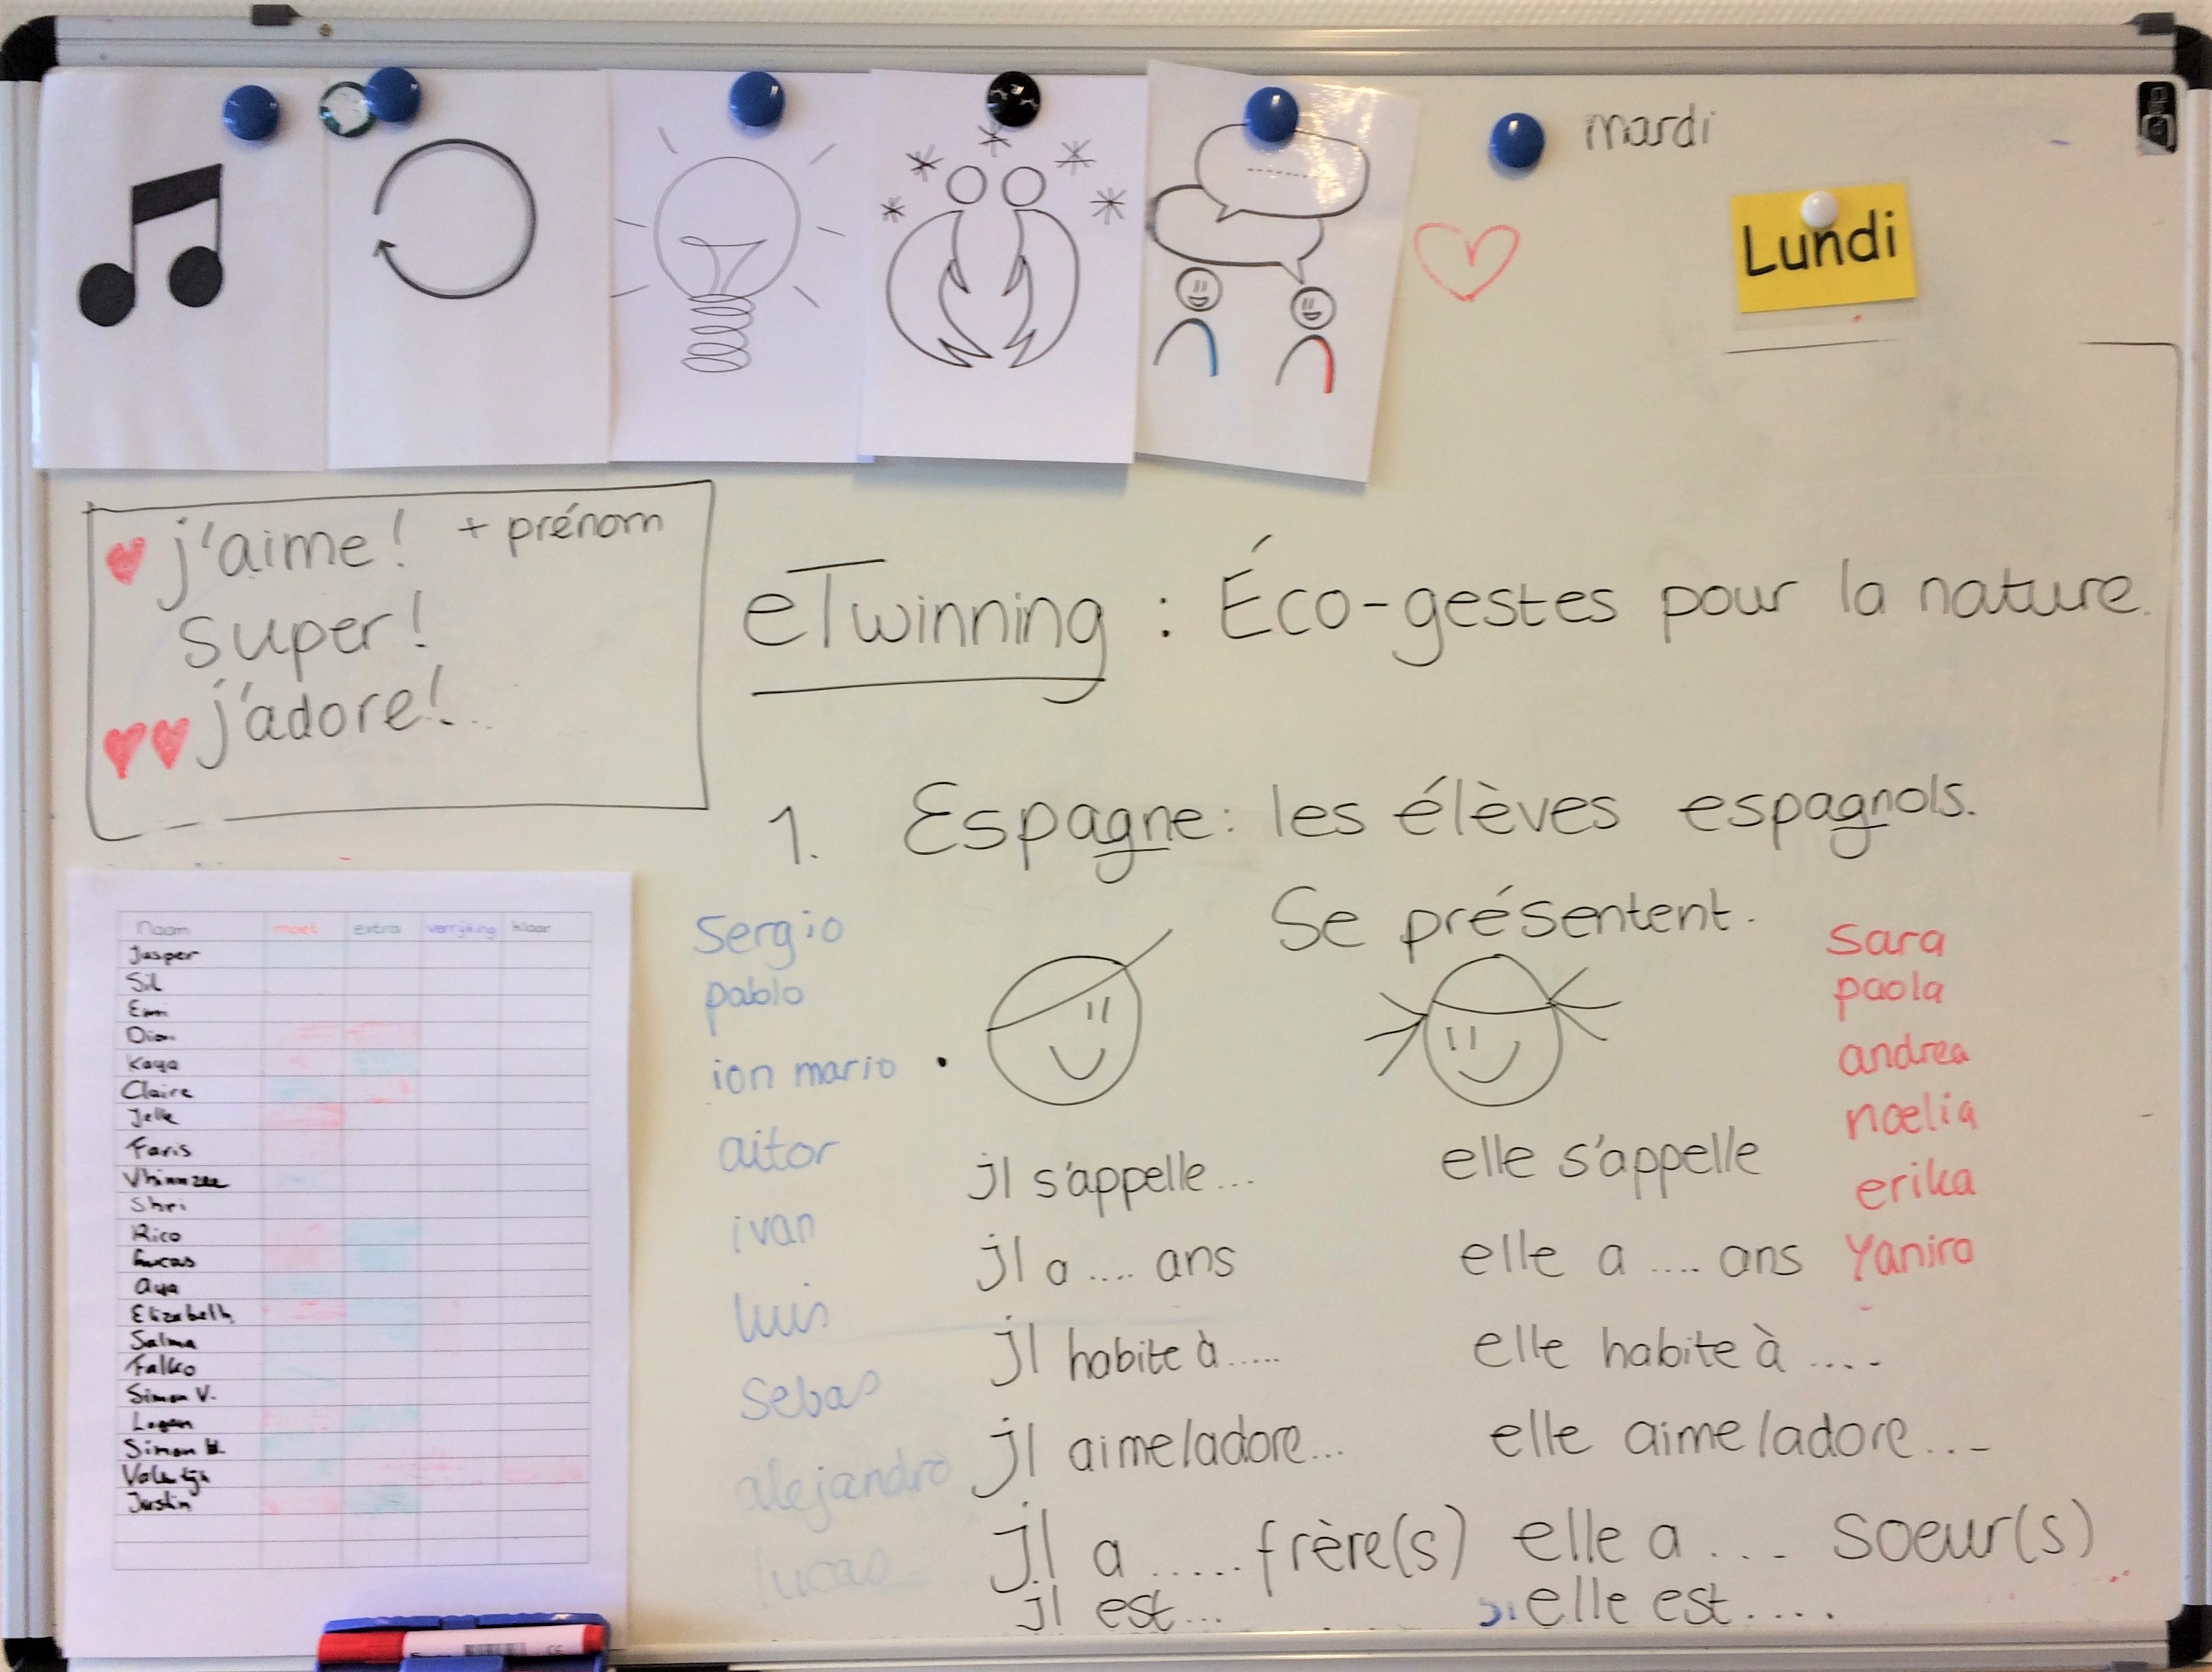 mardi
Lundi
j'aime! + prénom
super!
j'adore!...
eTwinning : Éco-gestes pour la nature.
1. Espagne: les élèves espagnols.
Se présentent.
sergio
pablo
ion mario
aitor
ivan
luis
sebas
alejandro
lucas
sara
paola
andrea
nœlia
erika
Yanira
il s'appelle...
il a .... ans
il habite à .....
il aime/adore...
il a ...... frère(s)
il est...
elle s'appelle
elle a .... ans
elle habite à ....
elle aime/adore...-
elle a ... soeur(s)
elle est ....
Naam moet extra verrijking klaar
Jasper
Sil
Emi
Dion
Kaya
Claire
Jelle
Faris
Shri
Rico
Lucas
Aya
Elizabeth
Salma
Falko
Simon V.
Logan
Simon H.
Valentijn
Justin